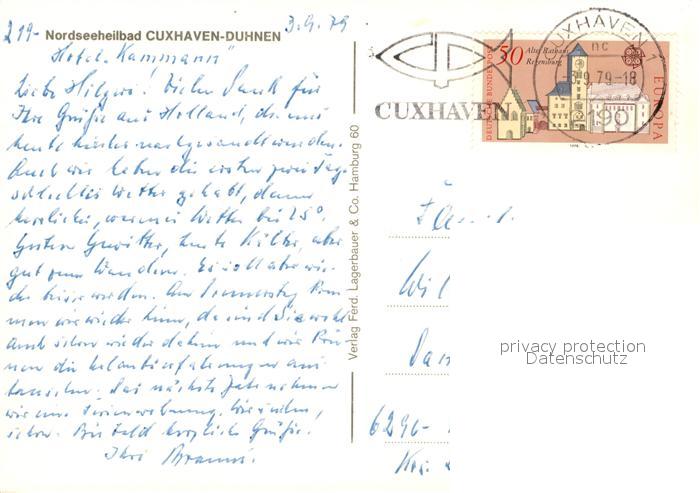 219- Nordseeheilbad CUXHAVEN-DUHNEN 3.9.79
"Hotel Kammann"
Liebe Hilgers! Vielen Dank für
Ihre Grüße aus Holland, die uns
heute hierher nachgesandt wurden.
Auch wir haben die ersten zwei Tage
schlechtes Wetter gehabt, dann
herrliches, warmes Wetter bis 25°.
Gestern Gewitter, heute Kälte, aber
gut zum Wandern. Es soll aber wie-
der besser werden. Am Donnerstag
men wir wieder heim, da sind Sie wohl
auch schon wieder daheim und wir kön-
nen die Urlaubserfahrungen aus-
tauschen. Das nächste Jahr nehmen
wir eine Ferienwohnung.
schon. Bis bald herzliche Grüße.
Ihre
Verlag Ferd. Lagerbauer & Co. Hamburg 60
CUXHAVEN
CUXHAVEN 1
nc
-3.9.79-18
190
DEUTSCHE BUNDESPOST
50 Altes Rathaus
Regensburg
EUROPA
6290-
privacy protection
Datenschutz